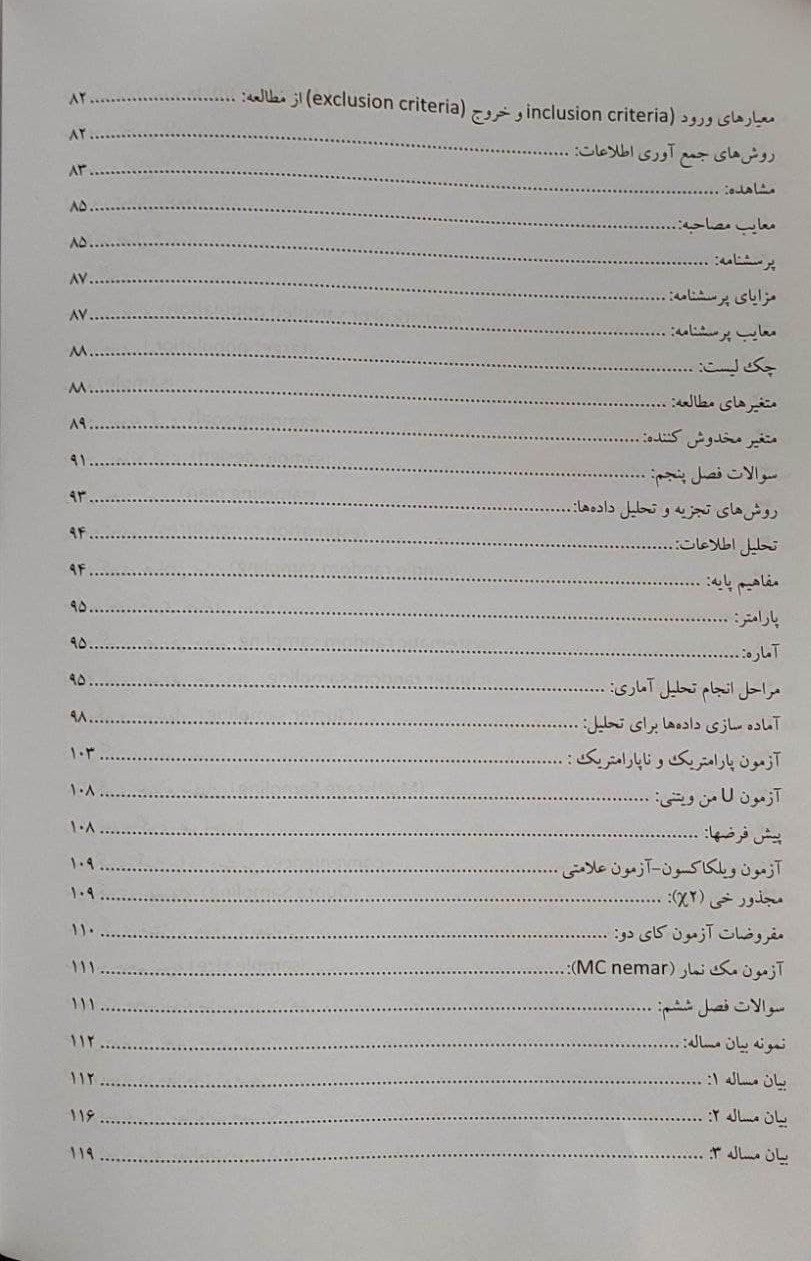 معیارهای ورود (inclusion criteria و خروج (exclusion criteria) از مطالعه: ........ ۸۲
روش‌های جمع آوری اطلاعات: ........ ۸۲
مشاهده: ........ ۸۳
معایب مصاحبه: ........ ۸۵
پرسشنامه: ........ ۸۵
مزایای پرسشنامه: ........ ۸۷
معایب پرسشنامه: ........ ۸۷
چک لیست: ........ ۸۸
متغیرهای مطالعه: ........ ۸۸
متغیر مخدوش کننده: ........ ۸۹
سوالات فصل پنجم: ........ ۹۱
روش‌های تجزیه و تحلیل داده‌ها: ........ ۹۳
تحلیل اطلاعات: ........ ۹۴
مفاهیم پایه: ........ ۹۴
پارامتر: ........ ۹۵
آماره: ........ ۹۵
مراحل انجام تحلیل آماری: ........ ۹۵
آماده سازی داده‌ها برای تحلیل: ........ ۹۸
آزمون پارامتریک و ناپارامتریک : ........ ۱۰۳
آزمون U من ویتنی: ........ ۱۰۸
پیش فرضها: ........ ۱۰۸
آزمون ویلکاکسون-آزمون علامتی ........ ۱۰۹
مجذور خی (χ۲): ........ ۱۰۹
مفروضات آزمون کای دو: ........ ۱۱۰
آزمون مک نمار (MC nemar): ........ ۱۱۱
سوالات فصل ششم: ........ ۱۱۱
نمونه بیان مساله: ........ ۱۱۲
بیان مساله ۱: ........ ۱۱۲
بیان مساله ۲: ........ ۱۱۶
بیان مساله ۳: ........ ۱۱۹